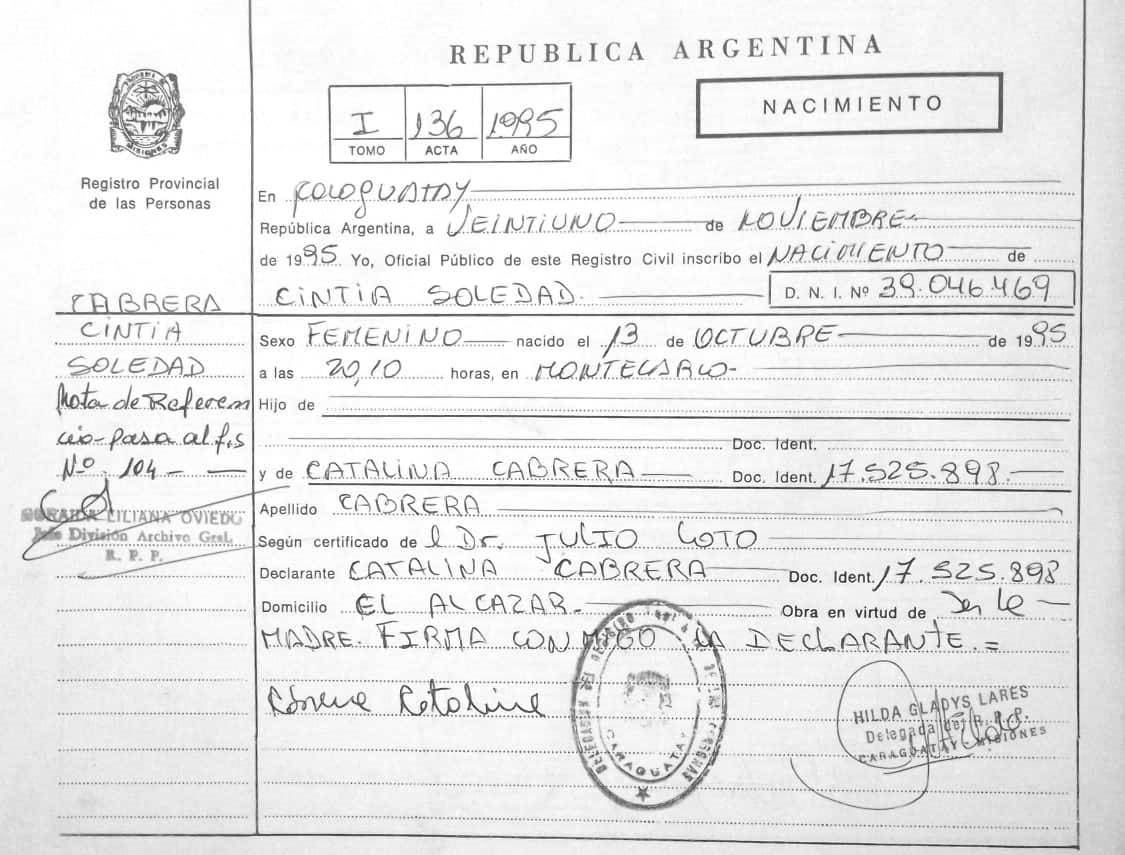 REPUBLICA ARGENTINA
NACIMIENTO
I 136 1995
TOMO ACTA AÑO
Registro Provincial
de las Personas
CABRERA
CINTIA
SOLEDAD
Nota de Referen
cia-pasa al f.s
Nº 104-
LILIANA OVIEDO
Jefe División Archivo Gral.
R. P. P.
En
República Argentina, a VEINTIUNO de NOVIEMBRE
de 1995 Yo, Oficial Público de este Registro Civil inscribo el NACIMIENTO de
CINTIA SOLEDAD. D. N. I. Nº 39.046.469
Sexo FEMENINO nacido el 13 de OCTUBRE de 1995
a las 20,10 horas, en MONTECARLO-
Hijo de
Doc. Ident.
y de CATALINA CABRERA Doc. Ident. 17.525.898.
Apellido CABRERA
Según certificado de l Dr. JULIO COTO
Declarante CATALINA CABRERA Doc. Ident. 17.525.898
Domicilio EL ALCAZAR- Obra en virtud de Ser la
MADRE. FIRMA CONMIGO LA DECLARANTE.=
Catalina
DELEGACION DEL REGISTRO DE LAS PERSONAS
CARAGUATAY
HILDA GLADYS LARES
Delegada del R. P. P.
CARAGUATAY MISIONES